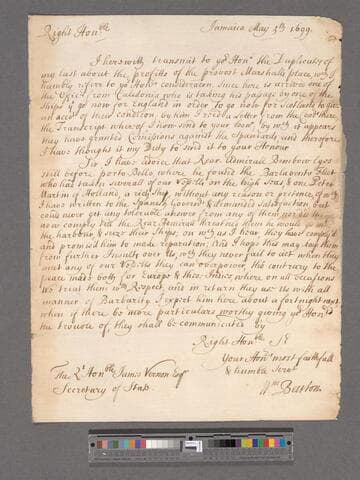 Right Hon:ble Jamaica May 5th 1699.
I herewith transmit to yor Honr the Duplicates of
my last about the profitts of the provost Marshalls place, wch I
humbly refer to yor Honrs consideracon. Since here is arrived one of
the Officrs from Caledonia who is taking his passage on one of the
Ships yt go now for England in order to go now for Scotland to give
an acct of their condition, by him I recd a Letter from the
the Transcript where of I here send to your Honr by wch it appears
they have granted Comissions against the Spaniards and therefore
I have thought it my Duty to send it to your Honour
Sr I have advice that Rear Admirall Bembow lyes
still before porto Bello, where he found the Barlavento Fleet
who had taken severall of our Vessells on the high Seas & one Peter
Martin of Holland, a year since without any reason or pretence, of wch
I have written to the Spanish Governrs & demanded satisfaction but
could never get any tolerable answer from any of them nor do they
now comply till the Rear Admirall threatned them he would go into
the harbour & seize their Ships, on wch as I hear they have complyed
and promised him to make reparation, And I hope this may stop them
from further Insults over Us, wch they never fail to act when they
meet any of our Vessells they can over power, tho contrary to the
peace made both for Europe & these Indies where on all occasions
we treat them wth Respect, and in return they use Us with all
manner of Barbarity. I expect him here about a fortnight next
when if there be more particulars worthy giving yor Honr
the trouble of, they shall be communicated by
Right Honble Sr
Your Honrs most faithfull
& humble Servt
Wm Beeston
The Rt Honble James Vernon Esqr
Secretary of State